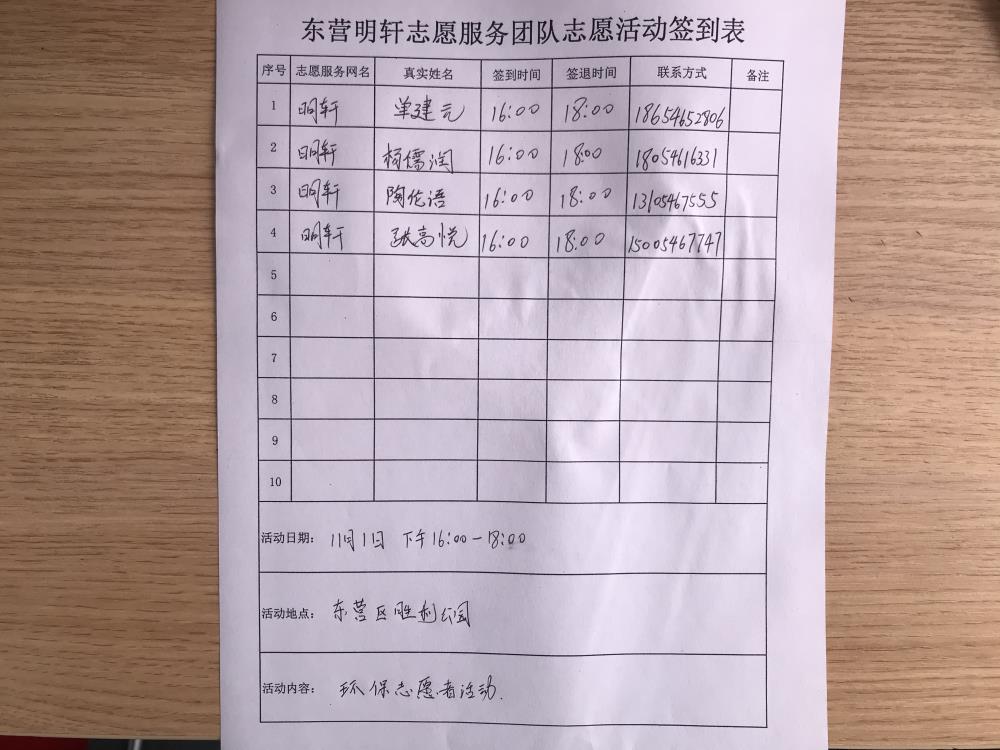 东营明轩志愿服务团队志愿活动签到表
序号 志愿服务网名 真实姓名 签到时间 签退时间 联系方式 备注
1 明轩 单建元 16:00 18:00 18654652806
2 明轩 柯儒润 16:00 18:00 18054616331
3 明轩 陶伦语 16:00 18:00 13105467555
4 明轩 张高悦 16:00 18:00 15005467747
5
6
7
8
9
10
活动日期： 11月1日 下午16:00-18:00
活动地点： 东营区胜利公园
活动内容： 环保志愿者活动.